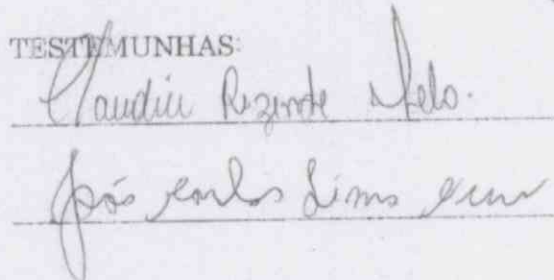 TESTEMUNHAS:
Claudia Rezende Melo.
José Carlos Lima